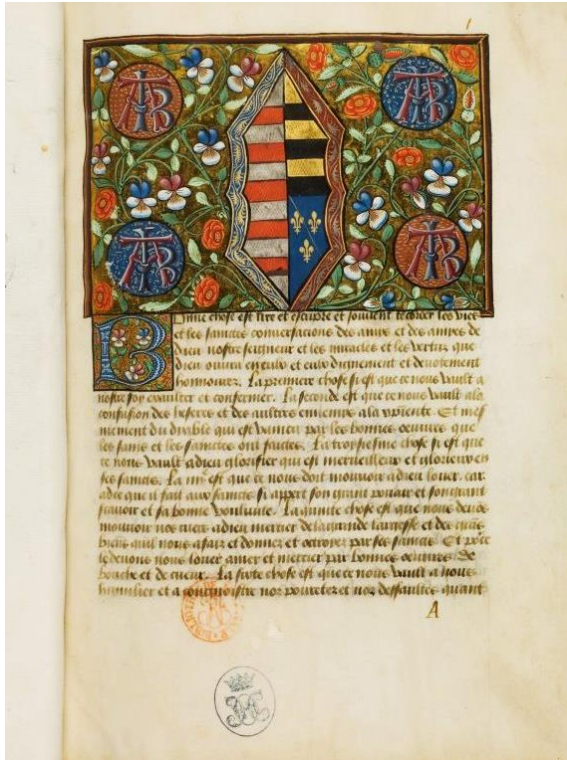 1
Bonne chose est lire et escripre et souvent recorder les vies
et les sainctes conversacions des amys et des amyes de
dieu nostre seigneur et les miracles et les vertuz que
dieu ouvra en eulx et eulx dignement et devotement
honnourer. La premiere chose si est que ce nous vault a
nostre foy exaulcer et confermer. La seconde est que ce nous vault a la
confusion des hereses et des aultres
du dyable qui est vaincu par les bonnes oeuvres que
les sains et les sainctes ont faictes. La troysiesme chose si est que
ce nous vault a dieu glorifier qui est merveilleux et glorieux en
ses sainctz. La est que ce nous doit mouvoir a dieu louer, car
a ce que il fait aux sainctz si appert son grant povair et son grant
scavoir et sa bonne voulunte. La quinte chose est que nous devons
mouvoir nos cueurs a dieu mercier de la grande largesse et des grans
biens quil nous a fais et donnez et octroyez par ses sainctz. Et pource
le devons nous louer amer et mercier par bonnes oeuvres de
bouche et de cueur. La sixte chose est que ce nous vault a nous
humilier et a congnoistre noz povretez et noz deffaultes quant
A